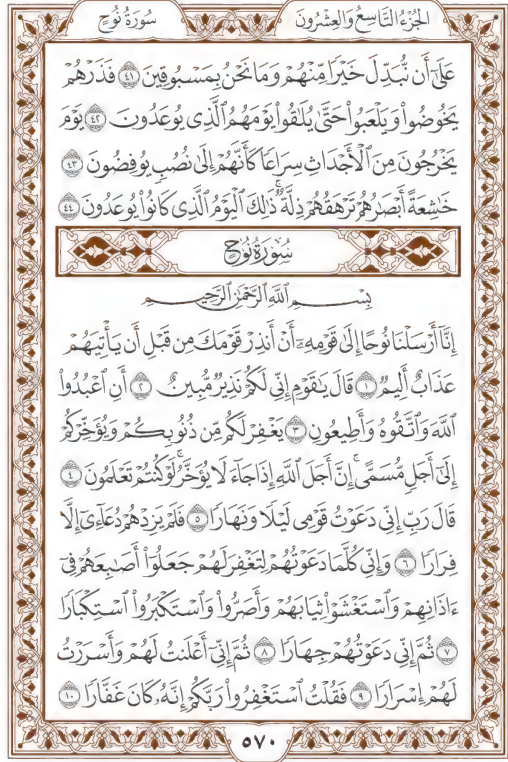 الجزء التاسع والعشرون
سورة نوح
عَلَىٰٓ أَن نُّبَدِّلَ خَيْرًا مِّنْهُمْ وَمَا نَحْنُ بِمَسْبُوقِينَ ٤١ فَذَرْهُمْ
يَخُوضُوا۟ وَيَلْعَبُوا۟ حَتَّىٰ يُلَـٰقُوا۟ يَوْمَهُمُ ٱلَّذِى يُوعَدُونَ ٤٢ يَوْمَ
يَخْرُجُونَ مِنَ ٱلْأَجْدَاثِ سِرَاعًا كَأَنَّهُمْ إِلَىٰ نُصُبٍ يُوفِضُونَ ٤٣
خَـٰشِعَةً أَبْصَـٰرُهُمْ تَرْهَقُهُمْ ذِلَّةٌ ۚ ذَٰلِكَ ٱلْيَوْمُ ٱلَّذِى كَانُوا۟ يُوعَدُونَ ٤٤
سُورَةُ نُوحٍ
بِسْمِ ٱللَّهِ ٱلرَّحْمَـٰنِ ٱلرَّحِيمِ
إِنَّآ أَرْسَلْنَا نُوحًا إِلَىٰ قَوْمِهِۦٓ أَنْ أَنذِرْ قَوْمَكَ مِن قَبْلِ أَن يَأْتِيَهُمْ
عَذَابٌ أَلِيمٌ ١ قَالَ يَـٰقَوْمِ إِنِّى لَكُمْ نَذِيرٌ مُّبِينٌ ٢ أَنِ ٱعْبُدُوا۟
ٱللَّهَ وَٱتَّقُوهُ وَأَطِيعُونِ ٣ يَغْفِرْ لَكُم مِّن ذُنُوبِكُمْ وَيُؤَخِّرْكُمْ
إِلَىٰٓ أَجَلٍ مُّسَمًّى ۚ إِنَّ أَجَلَ ٱللَّهِ إِذَا جَآءَ لَا يُؤَخَّرُ ۖ لَوْ كُنتُمْ تَعْلَمُونَ ٤
قَالَ رَبِّ إِنِّى دَعَوْتُ قَوْمِى لَيْلًا وَنَهَارًا ٥ فَلَمْ يَزِدْهُمْ دُعَآءِىٓ إِلَّا
فِرَارًا ٦ وَإِنِّى كُلَّمَا دَعَوْتُهُمْ لِتَغْفِرَ لَهُمْ جَعَلُوٓا۟ أَصَـٰبِعَهُمْ فِىٓ
ءَاذَانِهِمْ وَٱسْتَغْشَوْا۟ ثِيَابَهُمْ وَأَصَرُّوا۟ وَٱسْتَكْبَرُوا۟ ٱسْتِكْبَارًا
٧ ثُمَّ إِنِّى دَعَوْتُهُمْ جِهَارًا ٨ ثُمَّ إِنِّىٓ أَعْلَنتُ لَهُمْ وَأَسْرَرْتُ
لَهُمْ إِسْرَارًا ٩ فَقُلْتُ ٱسْتَغْفِرُوا۟ رَبَّكُمْ إِنَّهُۥ كَانَ غَفَّارًا ١٠
٥٧٠